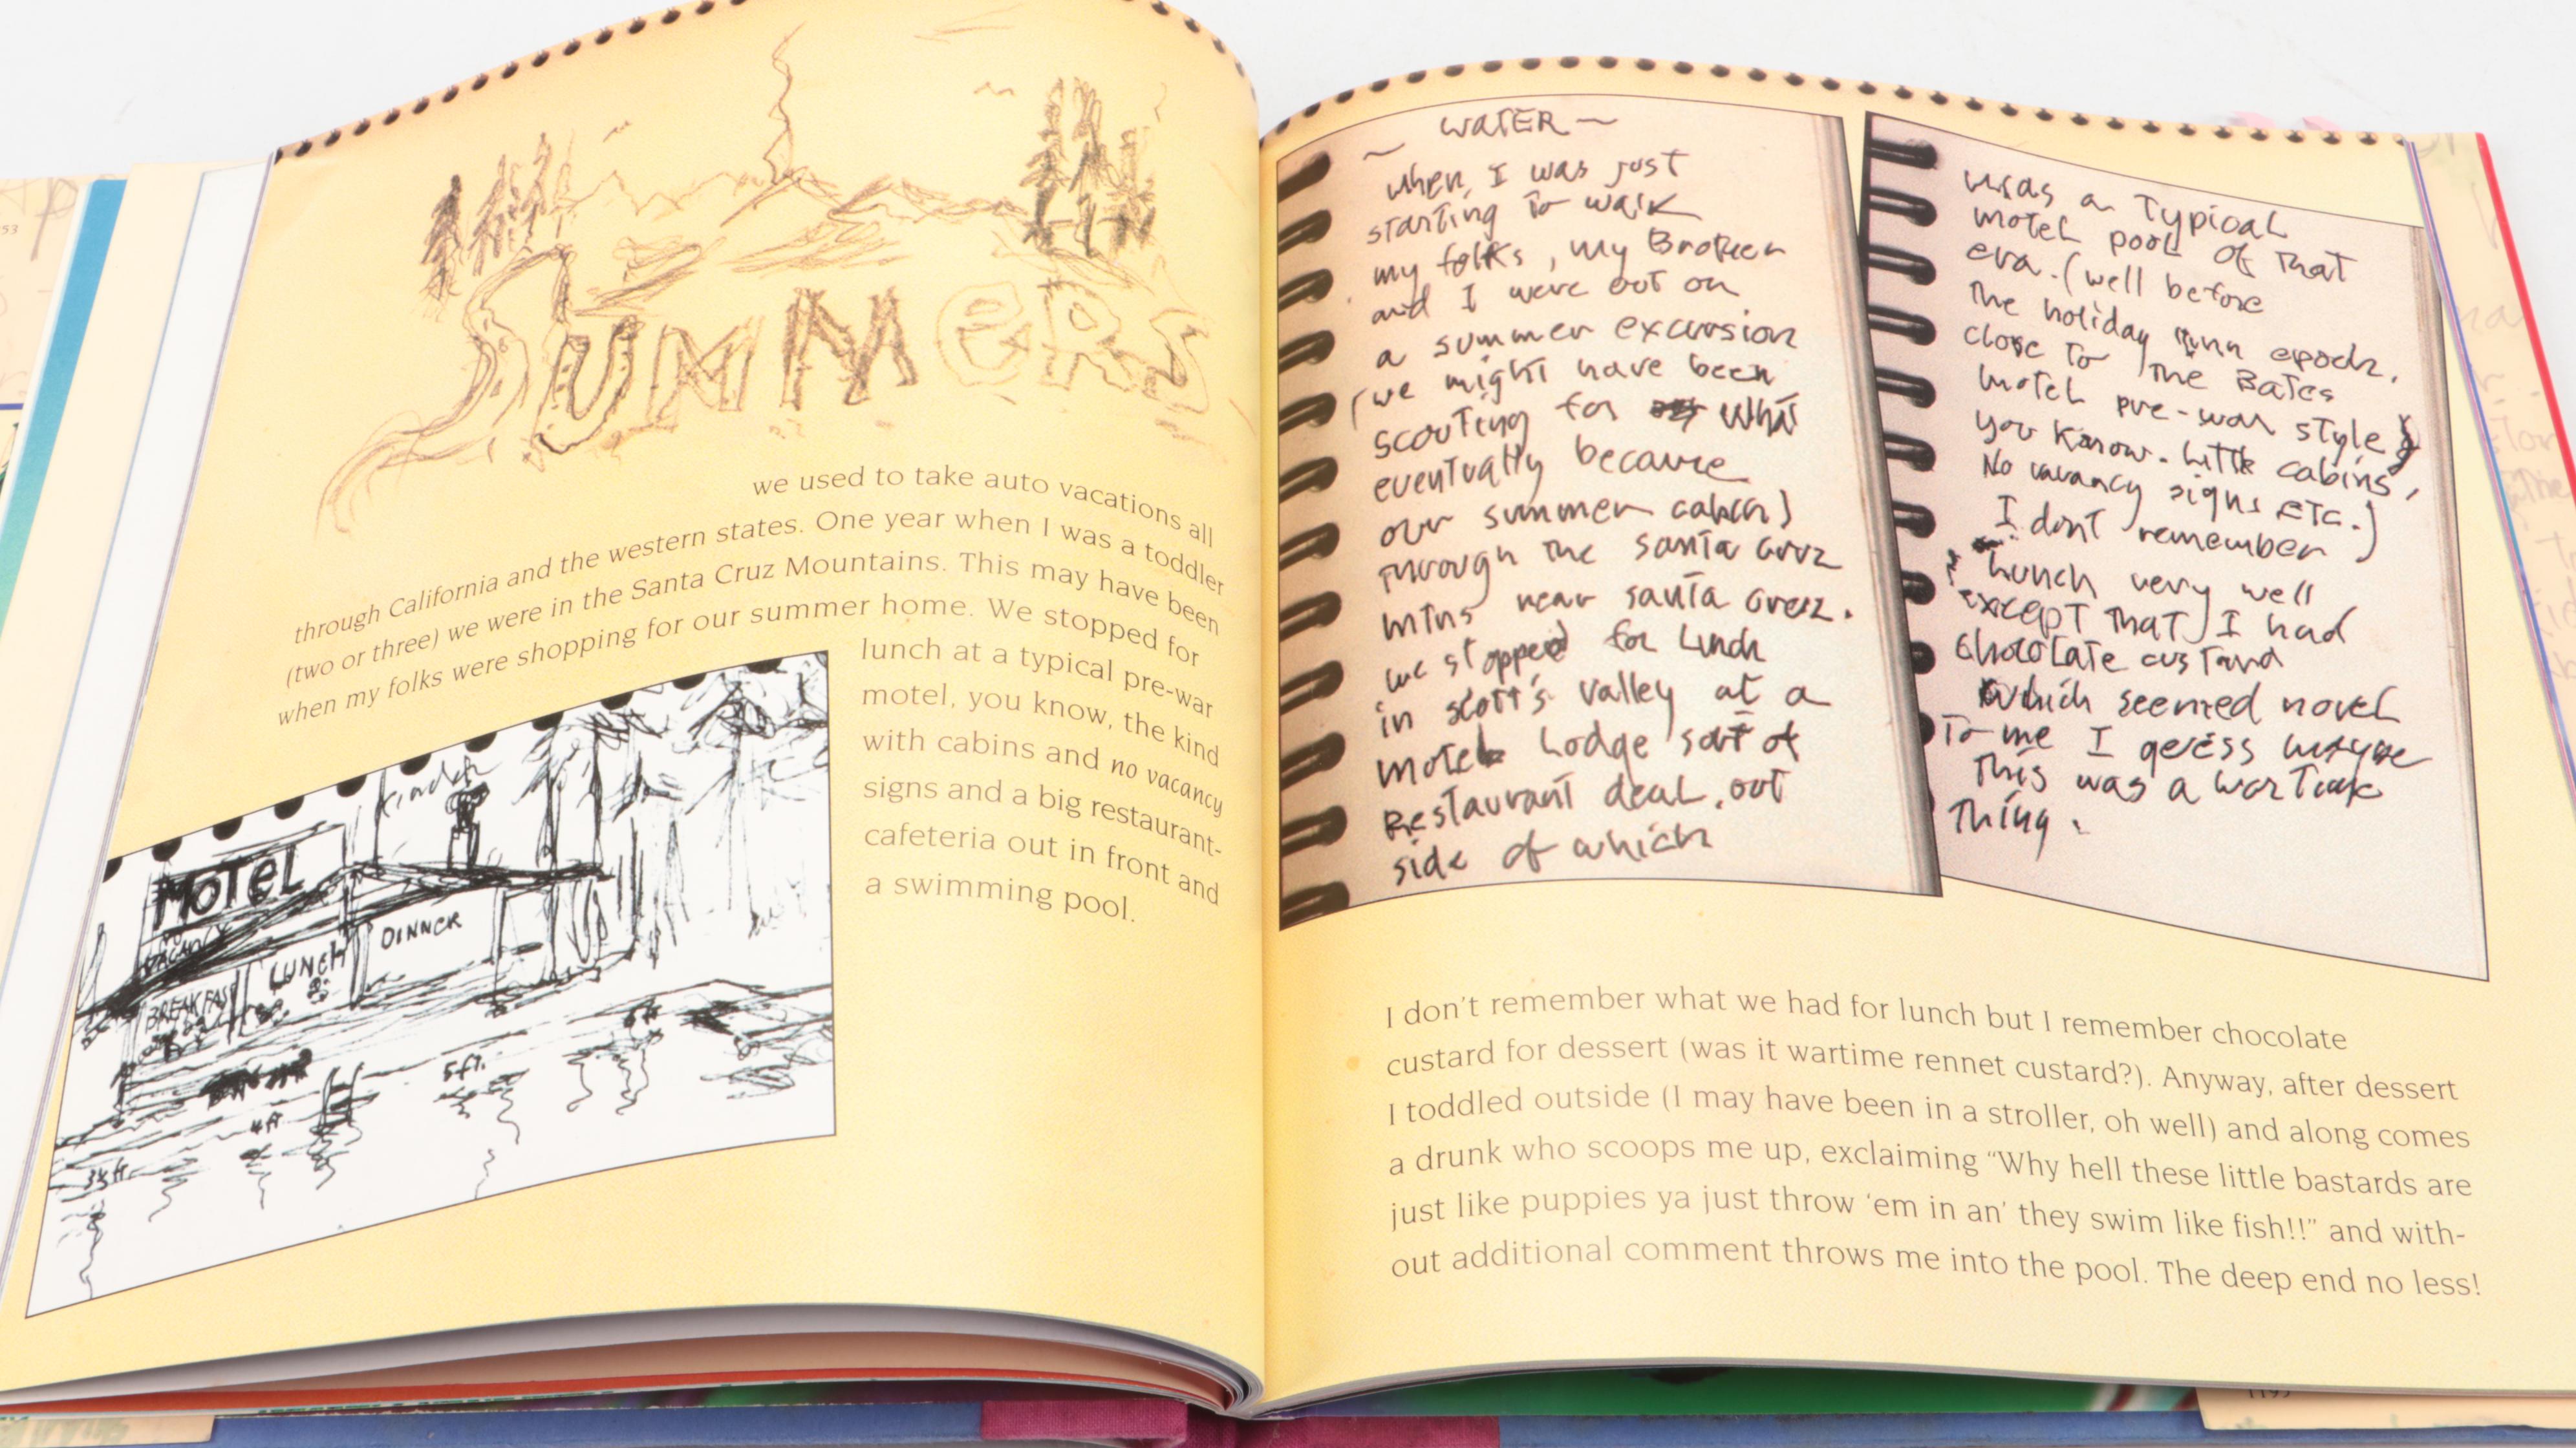 SUMMERS
we used to take auto vacations all
through California and the western states. One year when I was a toddler
(two or three) we were in the Santa Cruz Mountains. This may have been
when my folks were shopping for our summer home. We stopped for
lunch at a typical pre-war
motel, you know, the kind
with cabins and no vacancy
signs and a big restaurant-
cafeteria out in front and
a swimming pool.
MOTEL
VACANCY
BREAKFAST
LUNCH
DINNER
5ft.
4ft
~ WATER ~
when I was just
starting to walk
my folks, my Brother
and I were out on
a summer excursion
(we might have been
scouting for what
eventually became
our summer cabin)
through the Santa Cruz
mtns near Santa Cruz.
we stopped for Lunch
in scott's valley at a
motel Lodge sort of
Restaurant deal, out
side of which
was a typical
motel pool of that
era. (well before
the holiday inn epoch,
close to the Bates
motel pre-war style
you know. Little cabins,
No vacancy signs etc.)
I don't remember
Lunch very well
except that I had
chocolate custard
which seemed novel
To me I guess maybe
this was a wartime
thing.
I don't remember what we had for lunch but I remember chocolate
custard for dessert (was it wartime rennet custard?). Anyway, after dessert
I toddled outside (I may have been in a stroller, oh well) and along comes
a drunk who scoops me up, exclaiming “Why hell these little bastards are
just like puppies ya just throw ‘em in an’ they swim like fish!!” and with-
out additional comment throws me into the pool. The deep end no less!